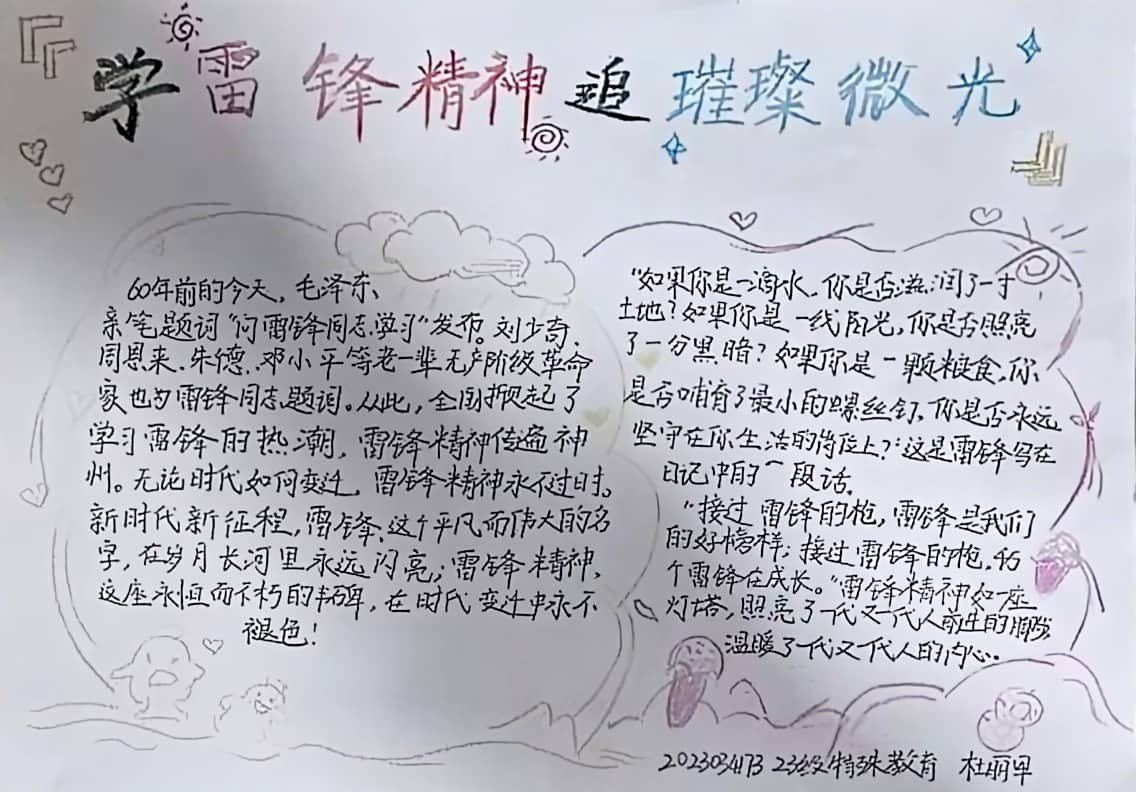 学雷锋精神追璀璨微光
60年前的今天，毛泽东、
亲笔题词“向雷锋同志学习”发布。刘少奇、
周恩来、朱德、邓小平等老一辈无产阶级革命
家也为雷锋同志题词。从此，全国掀起了
学习雷锋的热潮，雷锋精神传遍神
州。无论时代如何变迁，雷锋精神永不过时。
新时代新征程，雷锋、这个平凡而伟大的名
字，在岁月长河里永远闪亮；雷锋精神，
这座永恒而不朽的丰碑，在时代变迁中永不
褪色！
“如果你是一滴水，你是否滋润了一寸
土地？如果你是一线阳光，你是否照亮
了一分黑暗？如果你是一颗粮食，你
是否哺育了最小的螺丝钉，你是否永远
坚守在你生活的岗位上？”这是雷锋写在
日记中的一段话。
“接过雷锋的枪，雷锋是我们
的好榜样；接过雷锋的枪，
个雷锋在成长。”雷锋精神如一座
灯塔，照亮了一代又一代人前进的
温暖了一代又一代人的内心。
23级特殊教育 杜丽